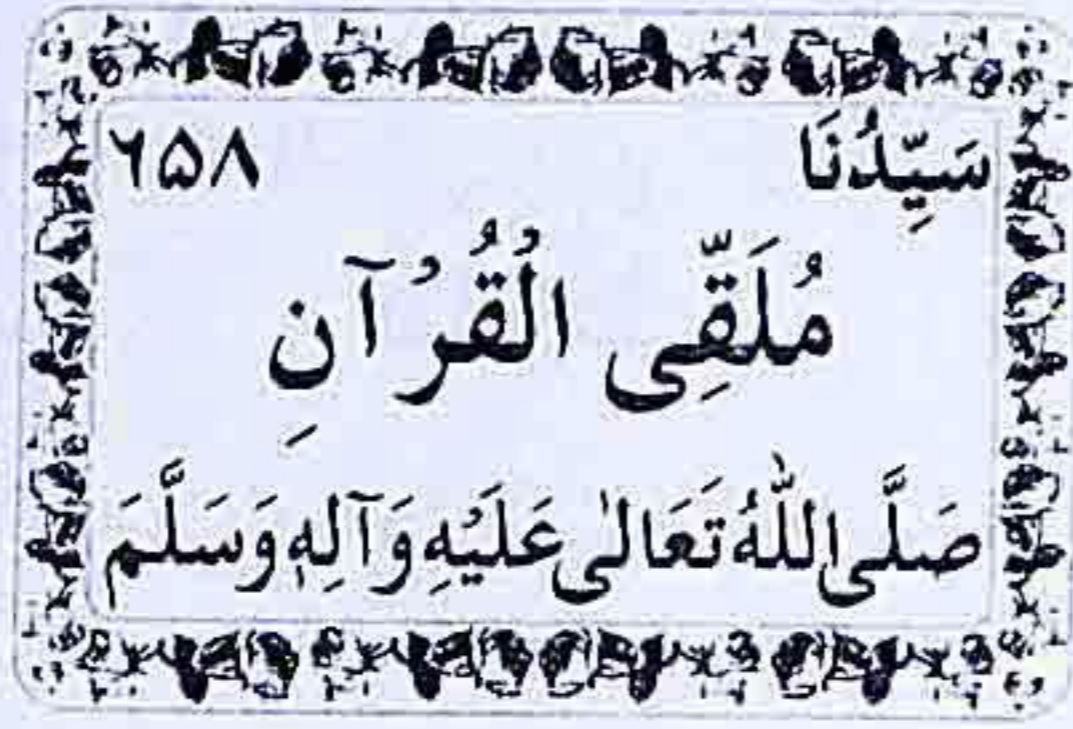 سَيِّدُنَا ۶۵۸
مُلَقِّى الْقُرْآنِ
صَلَّى اللّٰهُ تَعَالٰى عَلَيْهِ وَآلِهٖ وَسَلَّمَ